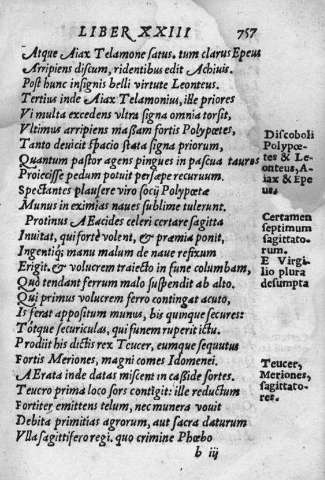 LIBER XXIII 757
Atque Aiax Telamone satus. tum clarus Epeus
Arripiens discum, ridentibus edit Achiuis.
Post hunc insignis belli virtute Leonteus.
Tertius inde Aiax Telamonius, ille priores
Vi multa excedens vltra signa omnia torsit,
Vltimus arripiens maßam fortis Polypœtes,
Tanto deuicit spacio stata signa priorum,
Quantum pastor agens pingues in pascua tauros
Proiecisse pedum potuit persæpe recuruum.
Spectantes plausere viro socij Polypœtæ
Munus in eximias naues sublime tulerunt.
Protinus AEacides celeri certare sagitta
Inuitat, qui forte volent, & præmia ponit,
Ingentiq; manu malum de naue refixum
Erigit. & volucrem traiecto in fune columbam,
Quo tendant ferrum malo suspendit ab alto.
Qui primus volucrem ferro contingat acuto,
Is ferat appositum munus, bis quinque secures:
Tótque securiculas, qui funem ruperit ictu.
Prodiit his dictis rex Teucer, eumque sequutus
Fortis Meriones, magni comes Idomenei.
AErata inde datas miscent in caßide sortes.
Teucro prima loco sors contigit: ille reductum
Fortiter emittens telum, nec munera vouit
Debita primitias agrorum, aut sacra daturum
Vlla sagittifero regi. quo crimine Phœbo
b iij
Discoboli
Polypœ-
tes & Le-
onteus, A-
iax & Epe
us.
Certamen
septimum
sagittato-
rum.
E Virgi-
lio plura
desumpta
Teucer,
Meriones,
sagittato-
res.